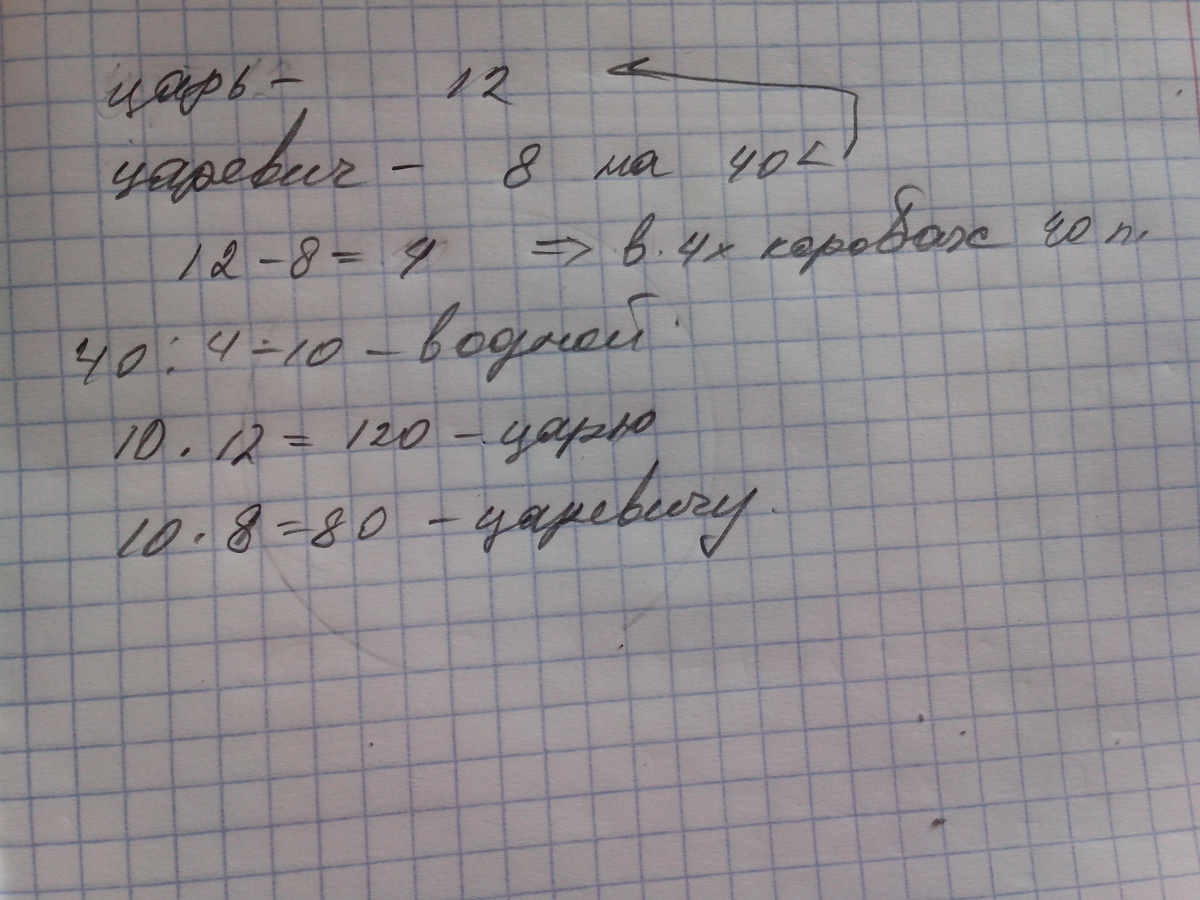 царь - 12
царевич - 8 на 40 <
12 - 8 = 4 => в 4х коробах 40 п.
40 : 4 = 10 - в одной
10 . 12 = 120 - царю
10 . 8 = 80 - царевичу.